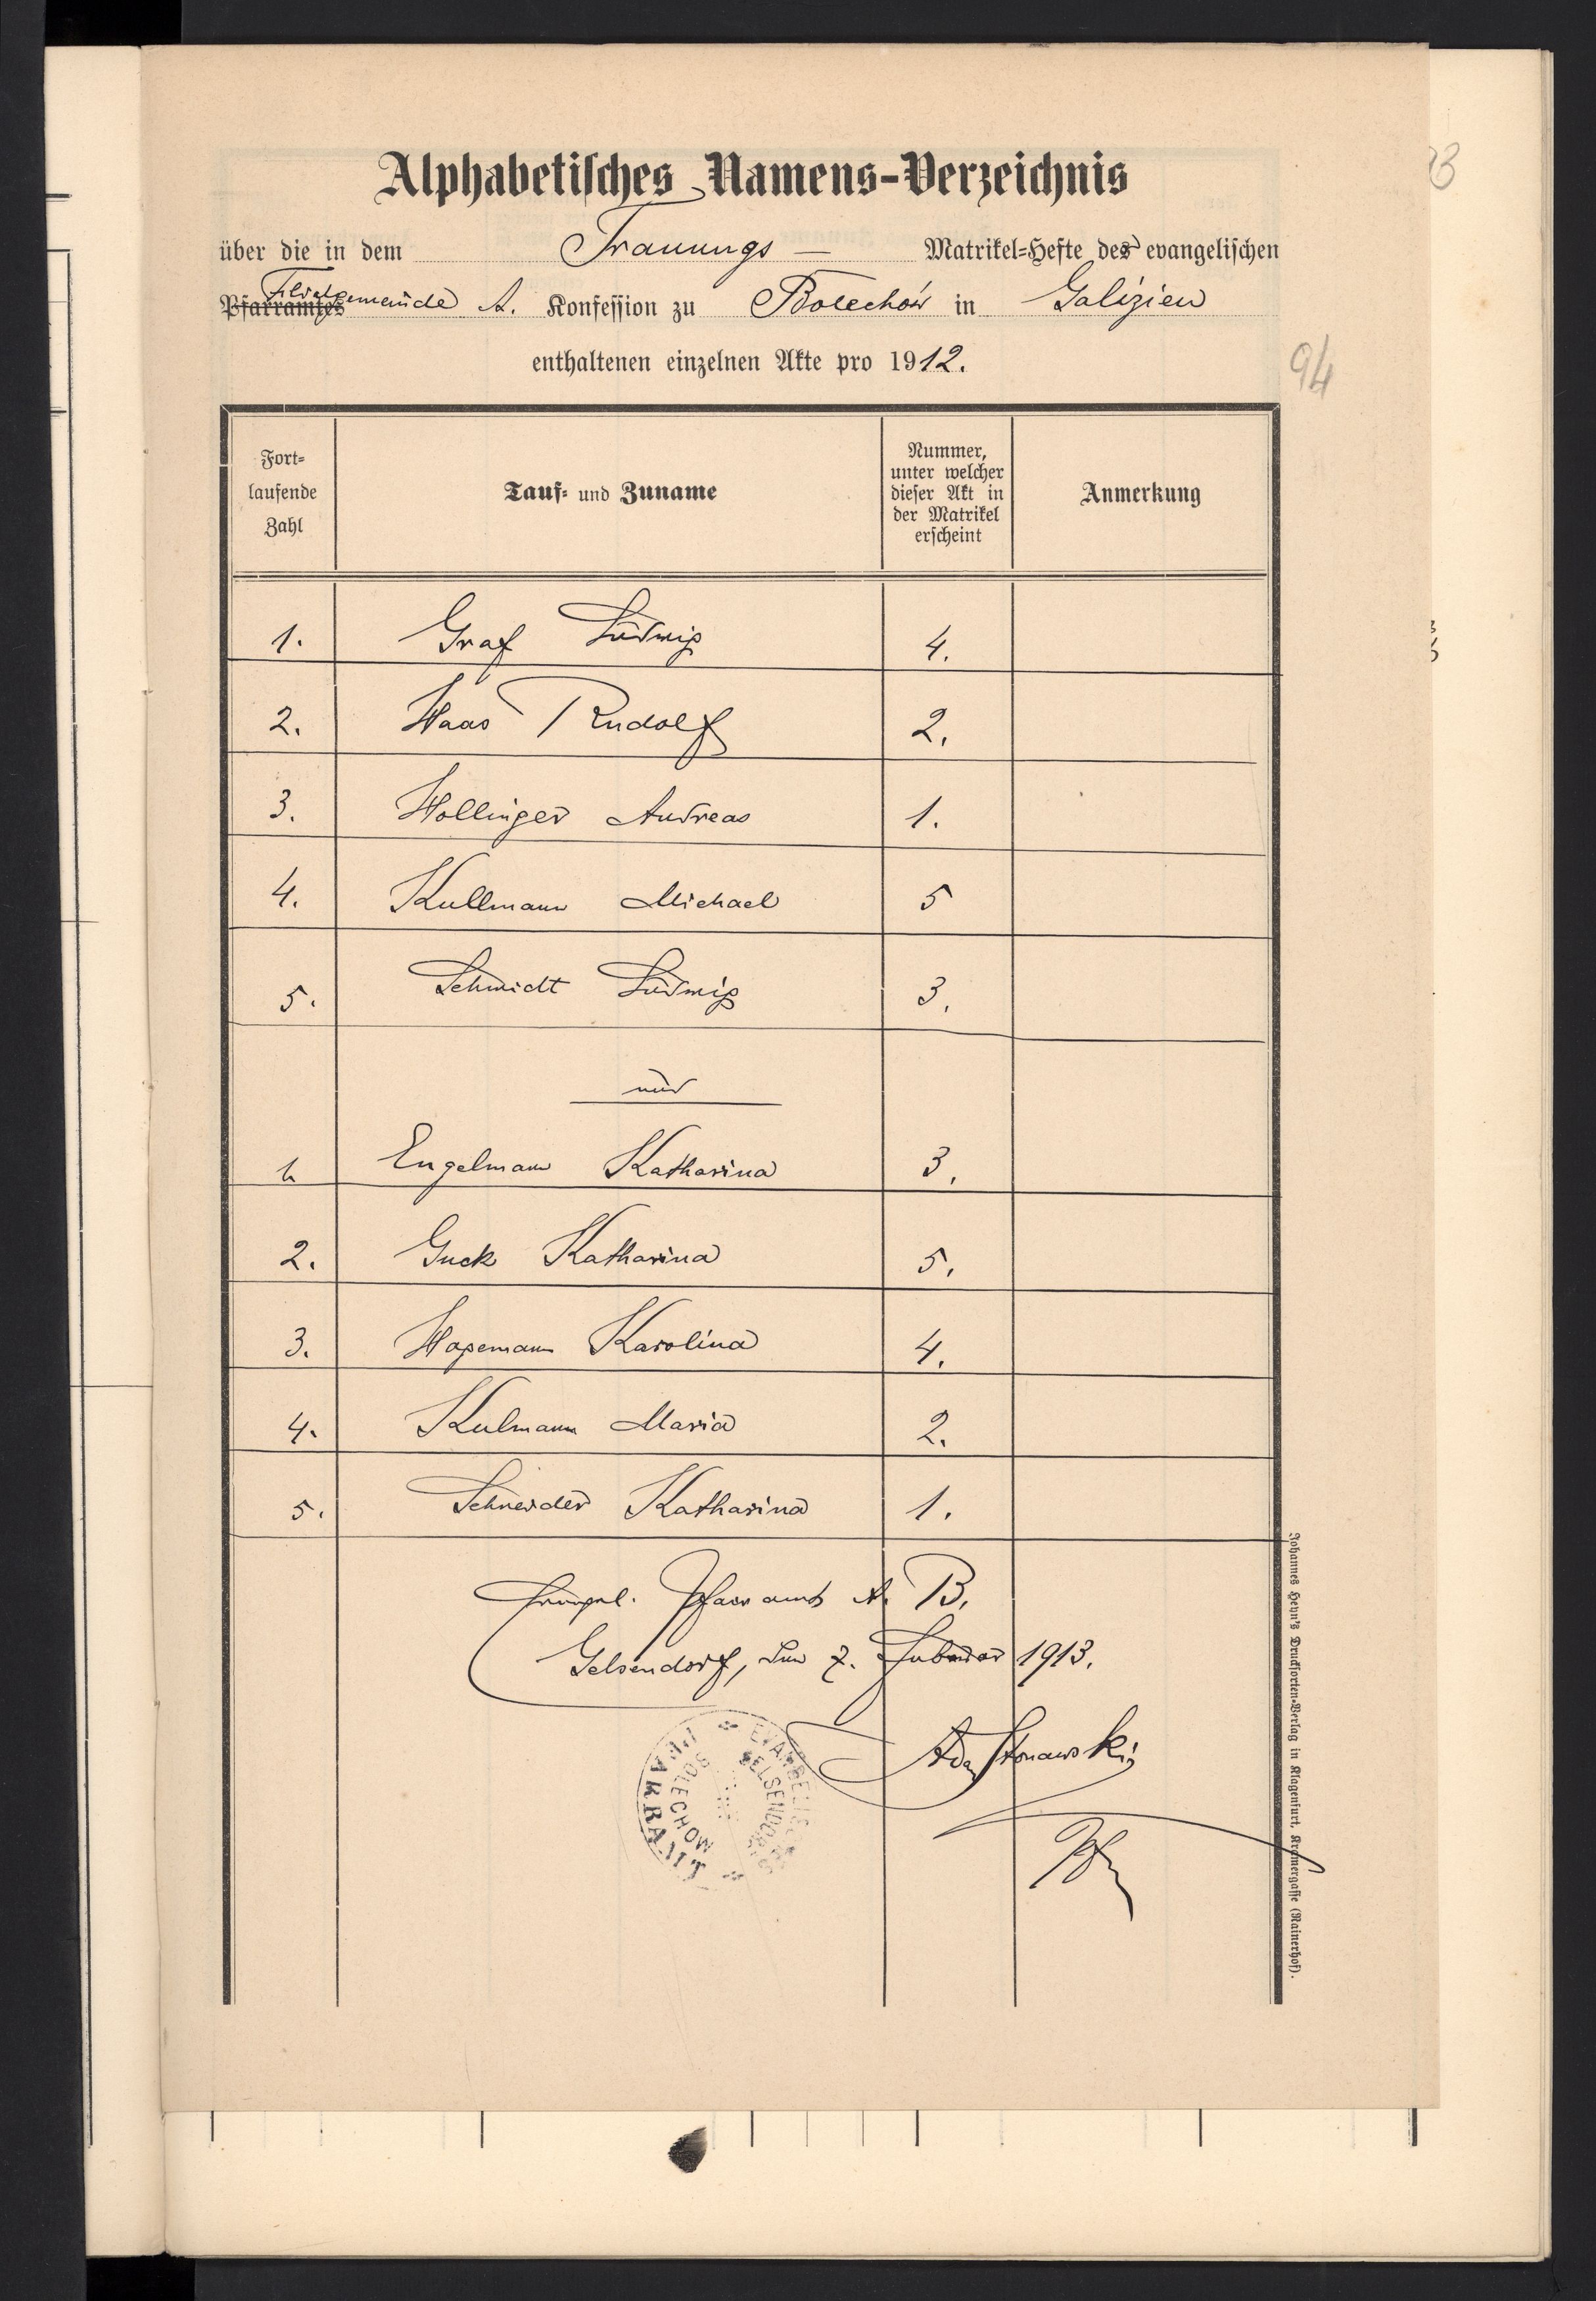 Alphabetisches Namens-Verzeichnis
über die in dem Trauungs — Matrikel-Hefte der evangelischen
Pfarramtes Filialgemeinde A. Konfession zu Bolechów in Galizien
enthaltenen einzelnen Akte pro 1912.
94
Fort-
laufende
Zahl
Tauf- und Zuname
Nummer,
unter welcher
dieser Akt in
der Matrikel
erscheint
Anmerkung
1. Graf Ludwig 4.
2. Haas Rudolf 2.
3. Hollinger Andreas 1.
4. Kullmann Michael 5
5. Schmidt Ludwig 3.
und
1. Engelmann Katharina 3.
2. Guck Katharina 5.
3. Hagemann Karolina 4.
4. Kulmann Maria 2.
5. Schneider Katharina 1.
Evangel. Pfarramt A. B.
Gelsendorf, den 7. Februar 1913.
Stonawski
Pfr
EVANGELISCHES
GELSENDORF
BOLECHOW
PFARRAMT
Johannes Heyn's Drucksorten-Verlag in Klagenfurt, Kramergasse (Rainerhof).